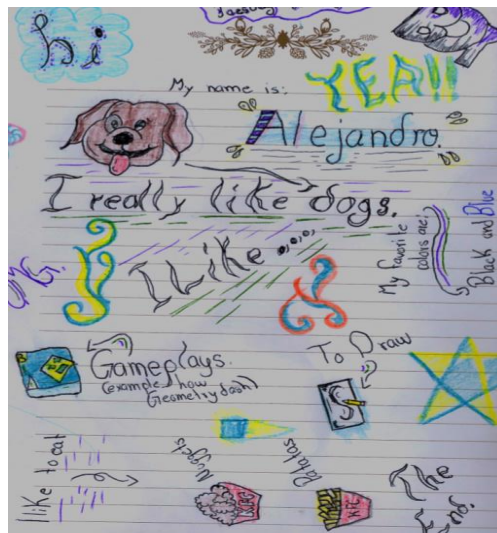 hi
My name is:
YEA!!
Alejandro.
I really like dogs.
I Like ....
My favorite
colors are:
Black and Blue
Gameplays.
(example now
Geometry dash)
To Draw
I like to eat
Nuggets
Patatas
KFC
The
End.